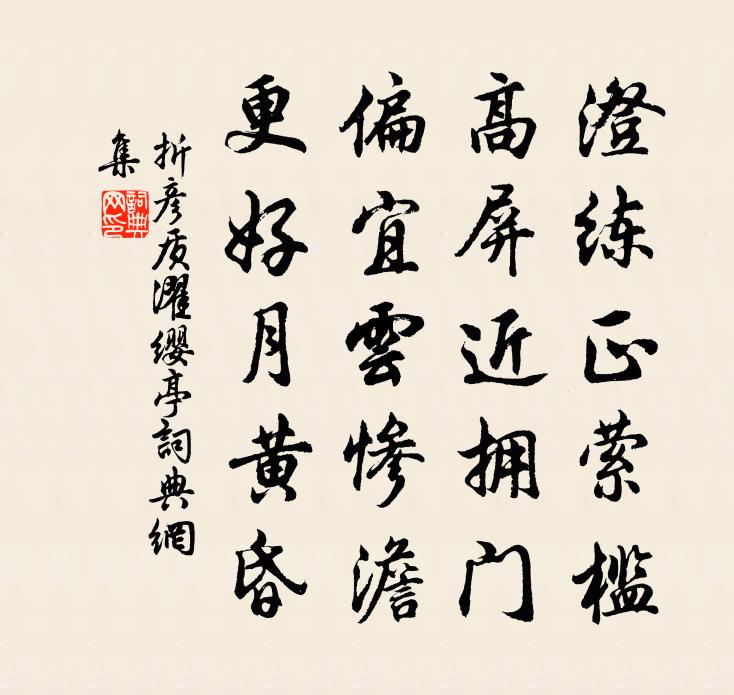 澄练正萦槛
高屏近拥门
偏宜雲惨澹
更好月黄昏
折彦质濯缨亭詞典網
集
詞典
网印